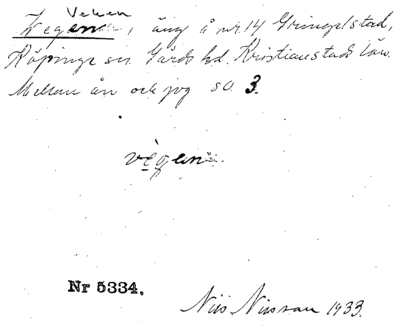 Veken
Vegen, äng å nr. 14 Gringelstad,
Köpinge sn. Gärds hd. Kristianstads län.
Mellan ån och jvg so 3.
vegen
Nr 5334.
Nils Nilsson 1933.